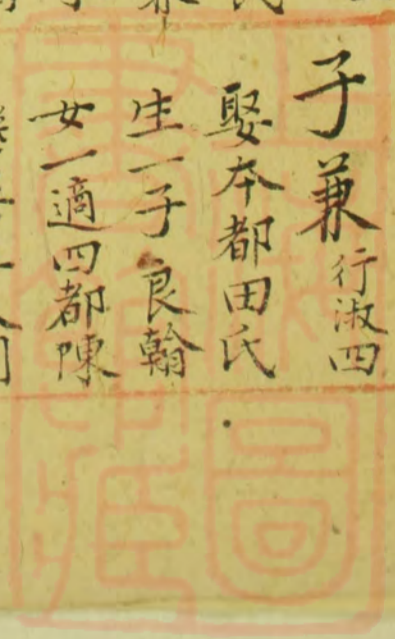 子兼行淑四
娶本都田氏
生一子良翰
女一適四都陳